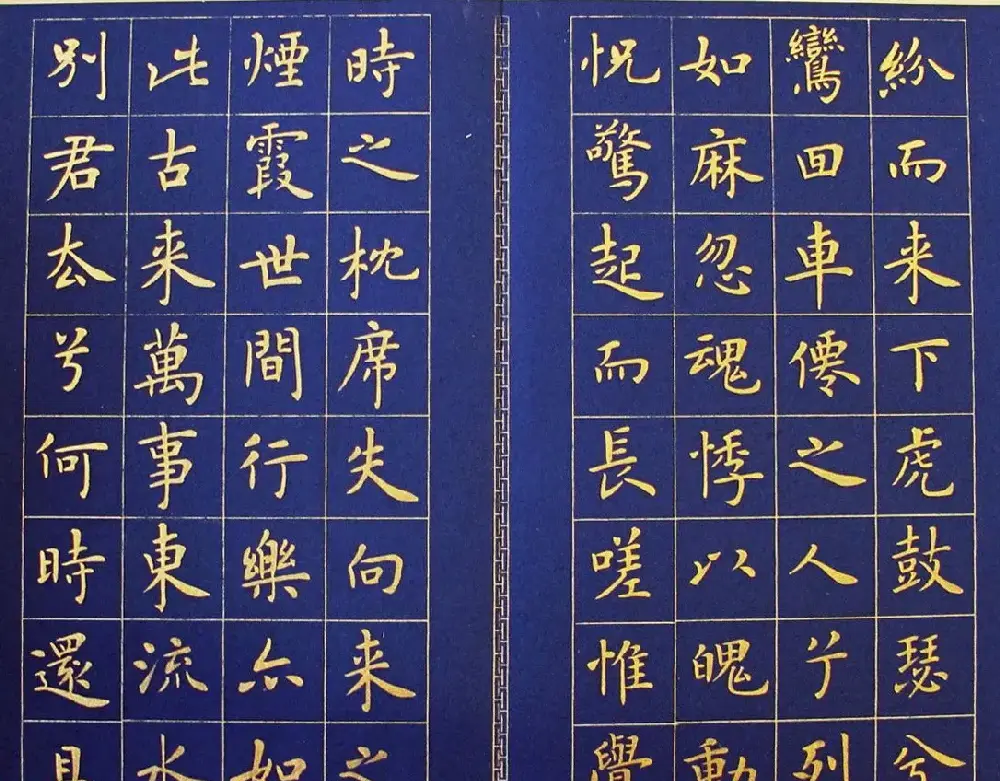 紛而来下虎鼓瑟兮
鸞回車僊之人兮列
如麻忽魂悸以魄動
怳驚起而長嗟惟覺
時之枕席失向来之
煙霞世間行樂亦如
此古来萬事東流水
別君去兮何時還且